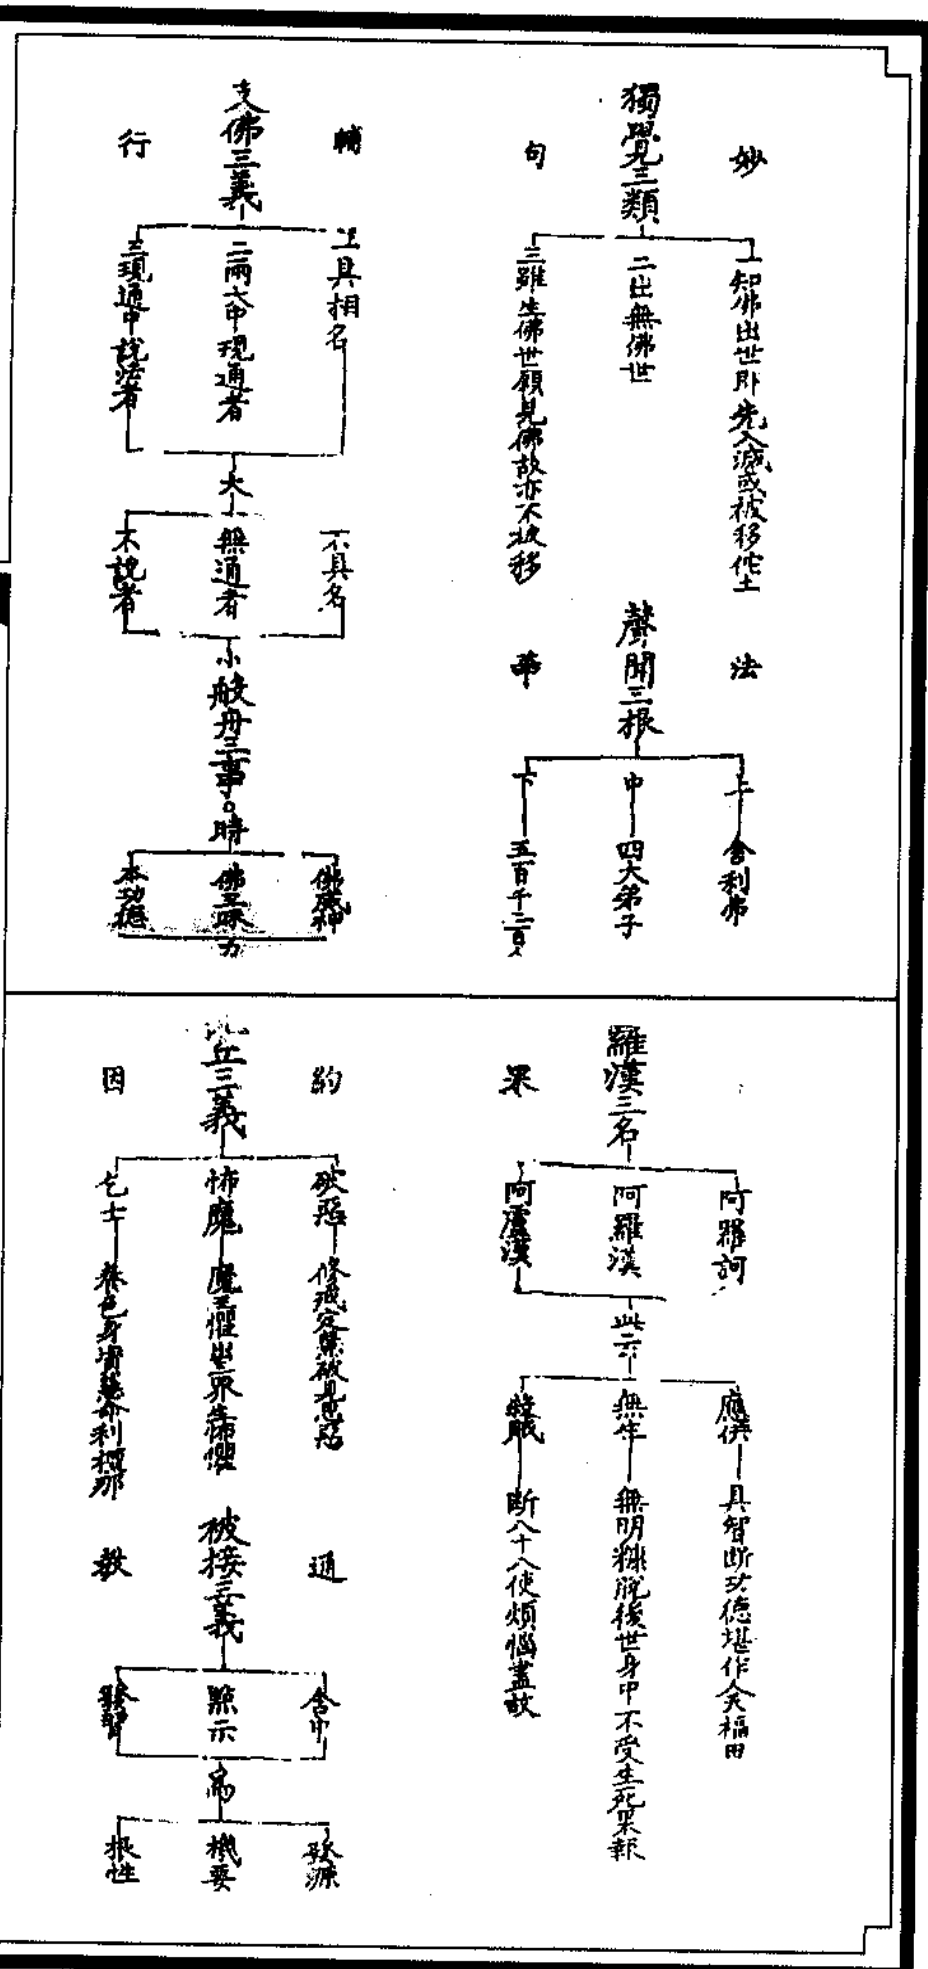 妙 法
獨覺三類
一知佛出世即先入滅或被移佗土
二出無佛世
三雖生佛世願見佛故亦不被移
句 華
聲聞三根
上 舍利弗
中 四大弟子
下 五百千二百人
輔 行
支佛三義
一具相名
二兩大中現通者
三現通中說法者
大
不具名
無通者
不說者
小
般舟三事。時
佛威神
佛三昧力
本功德
羅漢三名
阿羅訶
阿羅漢
阿盧漢
此云
應供 具智斷功德堪作人天福田
無生 無明糠脫後世身中不受生死果報
殺賊 斷八十八使煩惱盡故
約 果
比丘三義
破惡 修戒定慧破見思惡
怖魔 魔王懼出眾生怖懼
乞士
因
通 教
被接三義
含中
點示
發習
為
發源
機要
根性